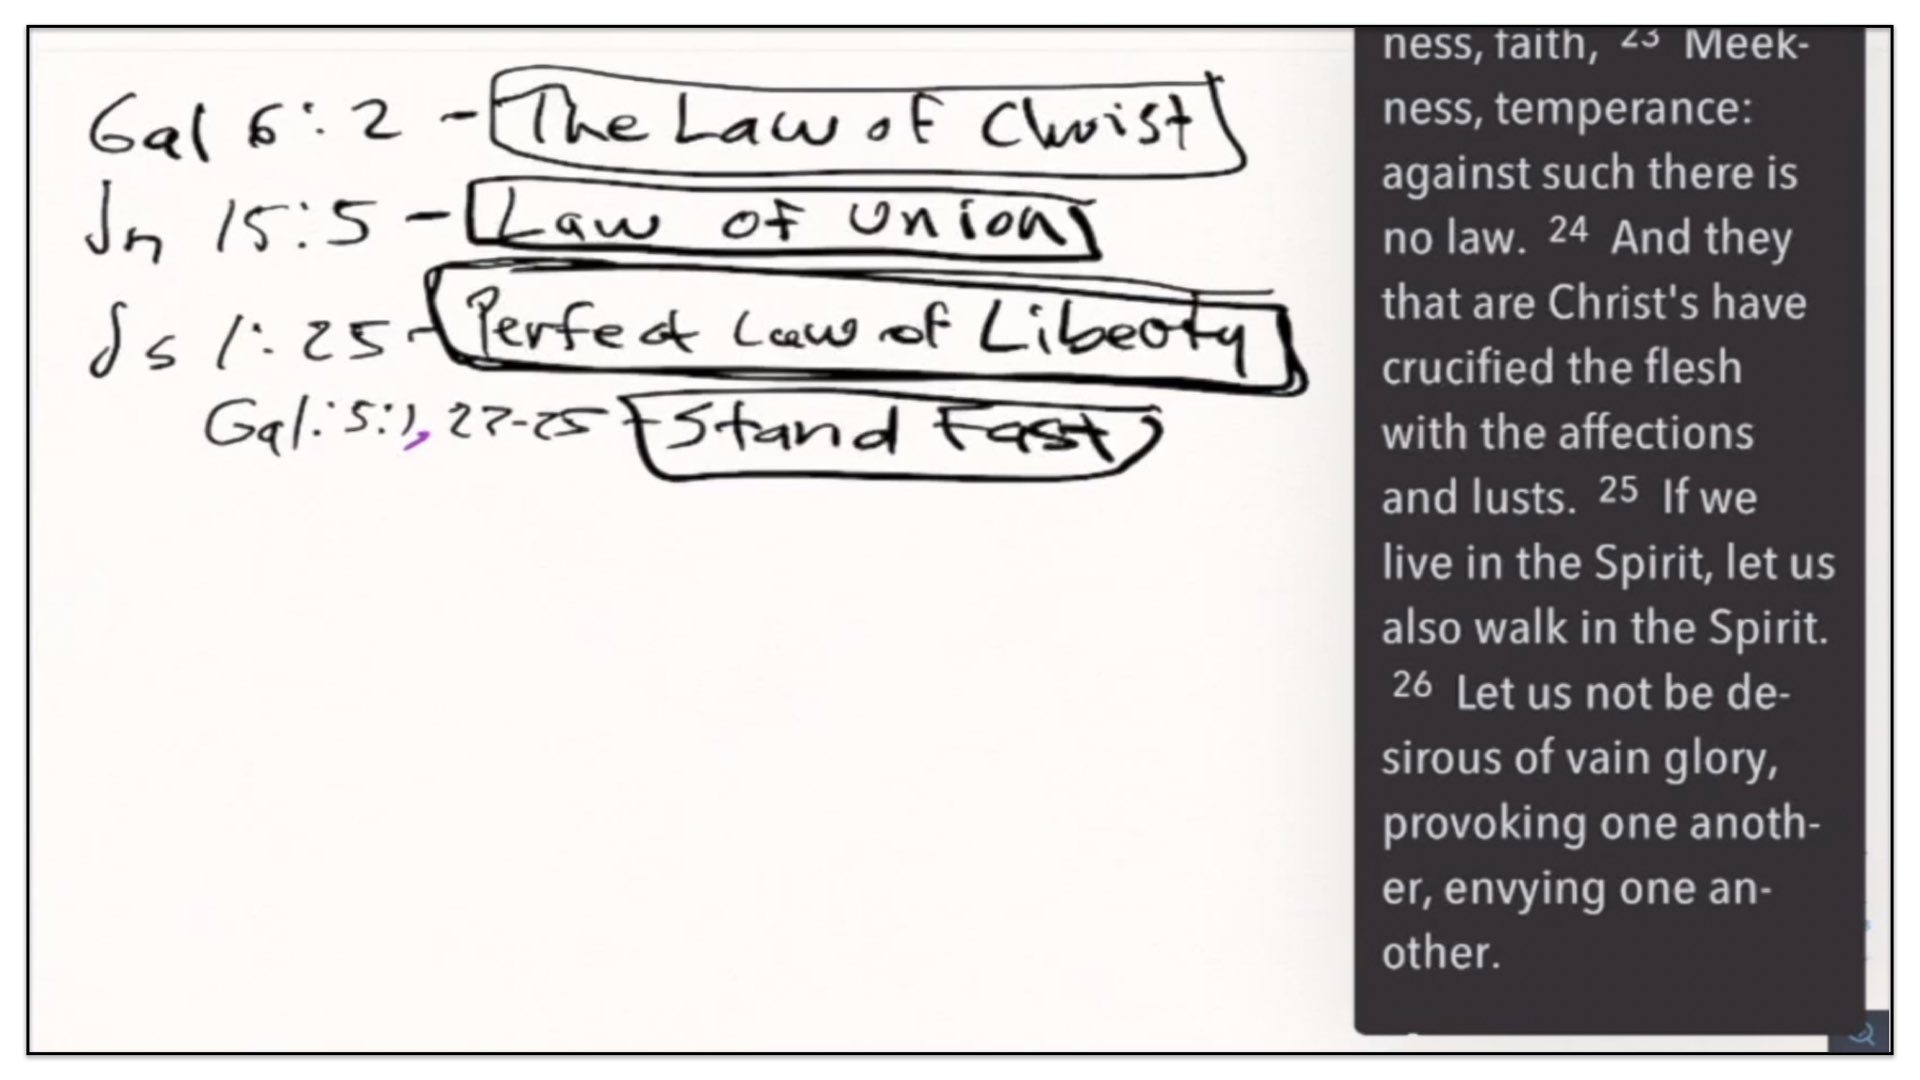 Gal 6:2 - The Law of Christ
Jn 15:5 - Law of Union
Js 1:25 - Perfect Law of Liberty
Gal:5:1, 22-25 - Stand Fast
ness, faith, 23 Meek-
ness, temperance:
against such there is
no law. 24 And they
that are Christ's have
crucified the flesh
with the affections
and lusts. 25 If we
live in the Spirit, let us
also walk in the Spirit.
26 Let us not be de-
sirous of vain glory,
provoking one anoth-
er, envying one an-
other.